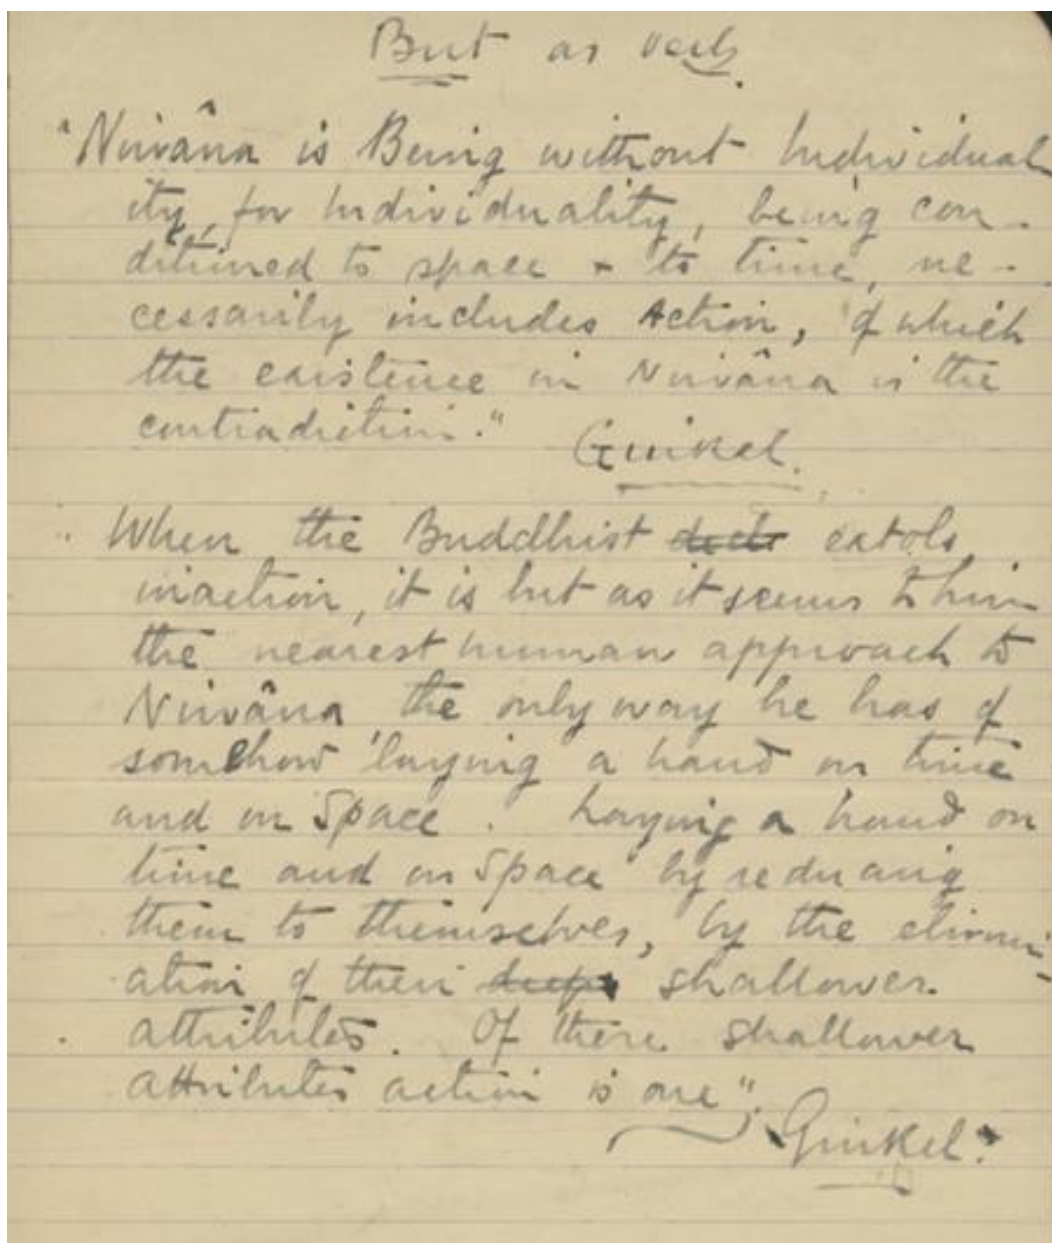 But as verb.
"Nirvâna is Being without Individual
ity, for Individuality, being con-
ditioned to space + to time, ne-
cessarily includes Action, of which
the existence in Nirvâna is the
contradiction."
Ginkel.
" When the Buddhist extols
inaction, it is but as it seems to him
the nearest human approach to
Nirvâna, the only way he has of
somehow 'laying a hand on time
and on Space. Laying a hand on
time and on Space' by reducing
them to themselves, by the elimin-
ation of their shallower
attributes. Of these shallower
attributes action is one".
Ginkel.